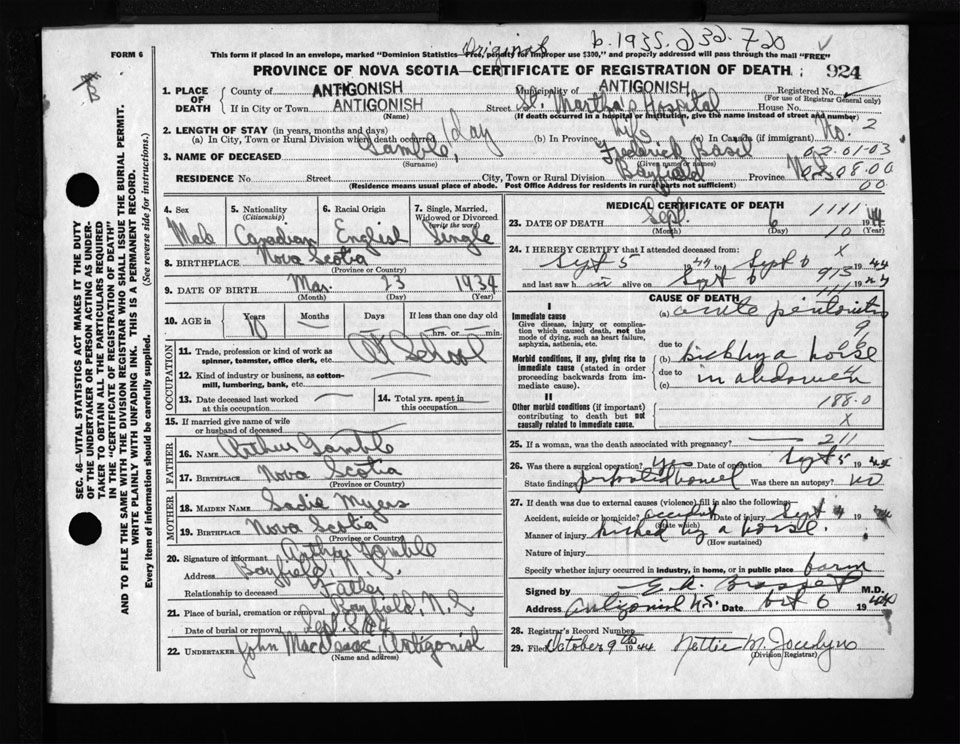 Original b. 1935. 232. 720
FORM 6
This form if placed in an envelope, marked "Dominion Statistics—Free, penalty for improper use $300," and properly addressed will pass through the mail "FREE"
PROVINCE OF NOVA SCOTIA—CERTIFICATE OF REGISTRATION OF DEATH 924
1. PLACE OF DEATH
County of ANTIGONISH Municipality of ANTIGONISH Registered No.
(For use of Registrar General only)
If in City or Town ANTIGONISH Street St. Martha's Hospital House No.
(Name) (If death occurred in a hospital or institution, give the name instead of street and number)
2. LENGTH OF STAY (in years, months and days)
(a) In City, Town or Rural Division where death occurred 1 day (b) In Province Life (c) In Canada (if immigrant) No. 2
02.01-03
3. NAME OF DECEASED Gamble, Frederick Basil
(Surname) (Given name or names)
RESIDENCE No. Street City, Town or Rural Division Bayfield Province N.S. 08.00
(Residence means usual place of abode. Post Office Address for residents in rural parts not sufficient) 00
4. Sex Male
5. Nationality (Citizenship) Canadian
6. Racial Origin English
7. Single, Married, Widowed or Divorced (write the word) Single
8. BIRTHPLACE Nova Scotia
(Province or Country)
9. DATE OF BIRTH Mar. 23 1934
(Month) (Day) (Year)
10. AGE in Years Months Days If less than one day old
10 hrs. or min.
OCCUPATION
11. Trade, profession or kind of work as spinner, teamster, office clerk, etc. At School
12. Kind of industry or business, as cotton-mill, lumbering, bank, etc.
13. Date deceased last worked at this occupation
14. Total yrs. spent in this occupation
15. If married give name of wife or husband of deceased
FATHER
16. NAME Arthur Gamble
17. BIRTHPLACE Nova Scotia
(Province or Country)
MOTHER
18. MAIDEN NAME Sadie Myers
19. BIRTHPLACE Nova Scotia
(Province or Country)
20. Signature of informant Arthur Gamble
Address Bayfield, N.S.
Relationship to deceased Father
21. Place of burial, cremation or removal Bayfield, N.S.
Date of burial or removal Sept.
22. UNDERTAKER John MacIsaac, Antigonish
(Name and address)
MEDICAL CERTIFICATE OF DEATH
23. DATE OF DEATH Sept. 6 1944
(Month) (Day) (Year)
1111
10
24. I HEREBY CERTIFY that I attended deceased from:
X
Sept 5 1944 to Sept 6 1944
and last saw him alive on Sept 6 1944
913
CAUSE OF DEATH
I
Immediate cause
Give disease, injury or complication which caused death, not the mode of dying, such as heart failure, asphyxia, asthenia, etc.
(a) acute peritonitis
due to
Morbid conditions, if any, giving rise to immediate cause (stated in order proceeding backwards from immediate cause).
(b) kick by a horse
due to
(c) in abdomen
II
Other morbid conditions (if important) contributing to death but not causally related to immediate cause.
188.0
X
25. If a woman, was the death associated with pregnancy? 211
26. Was there a surgical operation? yes Date of operation Sept 5 1944
State findings perforated bowel Was there an autopsy? no
27. If death was due to external causes (violence) fill in also the following:
Accident, suicide or homicide? accident Date of injury Sept 4 1944
(State which)
Manner of injury kicked by a horse.
(How sustained)
Nature of injury
Specify whether injury occurred in industry, in home, or in public place farm
Signed by M.D.
Address Antigonish N.S. Date Oct 6 1944
28. Registrar's Record Number
29. Filed October 9th 1944 Nettie M. Jocelyn
(Division Registrar)
SEC. 46—VITAL STATISTICS ACT MAKES IT THE DUTY
OF THE UNDERTAKER OR PERSON ACTING AS UNDER-
TAKER TO OBTAIN ALL THE PARTICULARS REQUIRED
IN THE "CERTIFICATE OF REGISTRATION OF DEATH"
AND TO FILE THE SAME WITH THE DIVISION REGISTRAR WHO SHALL ISSUE THE BURIAL PERMIT.
WRITE PLAINLY WITH UNFADING INK. THIS IS A PERMANENT RECORD.
Every item of information should be carefully supplied. (See reverse side for instructions.)